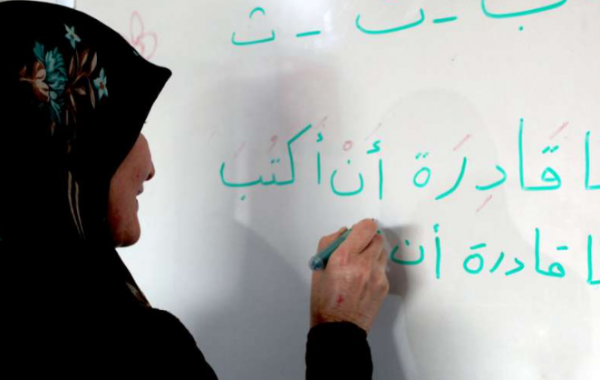 ب - ت - ث
ا قَادِرَة أَنْ أَكتُبَ
ا قادرة أن